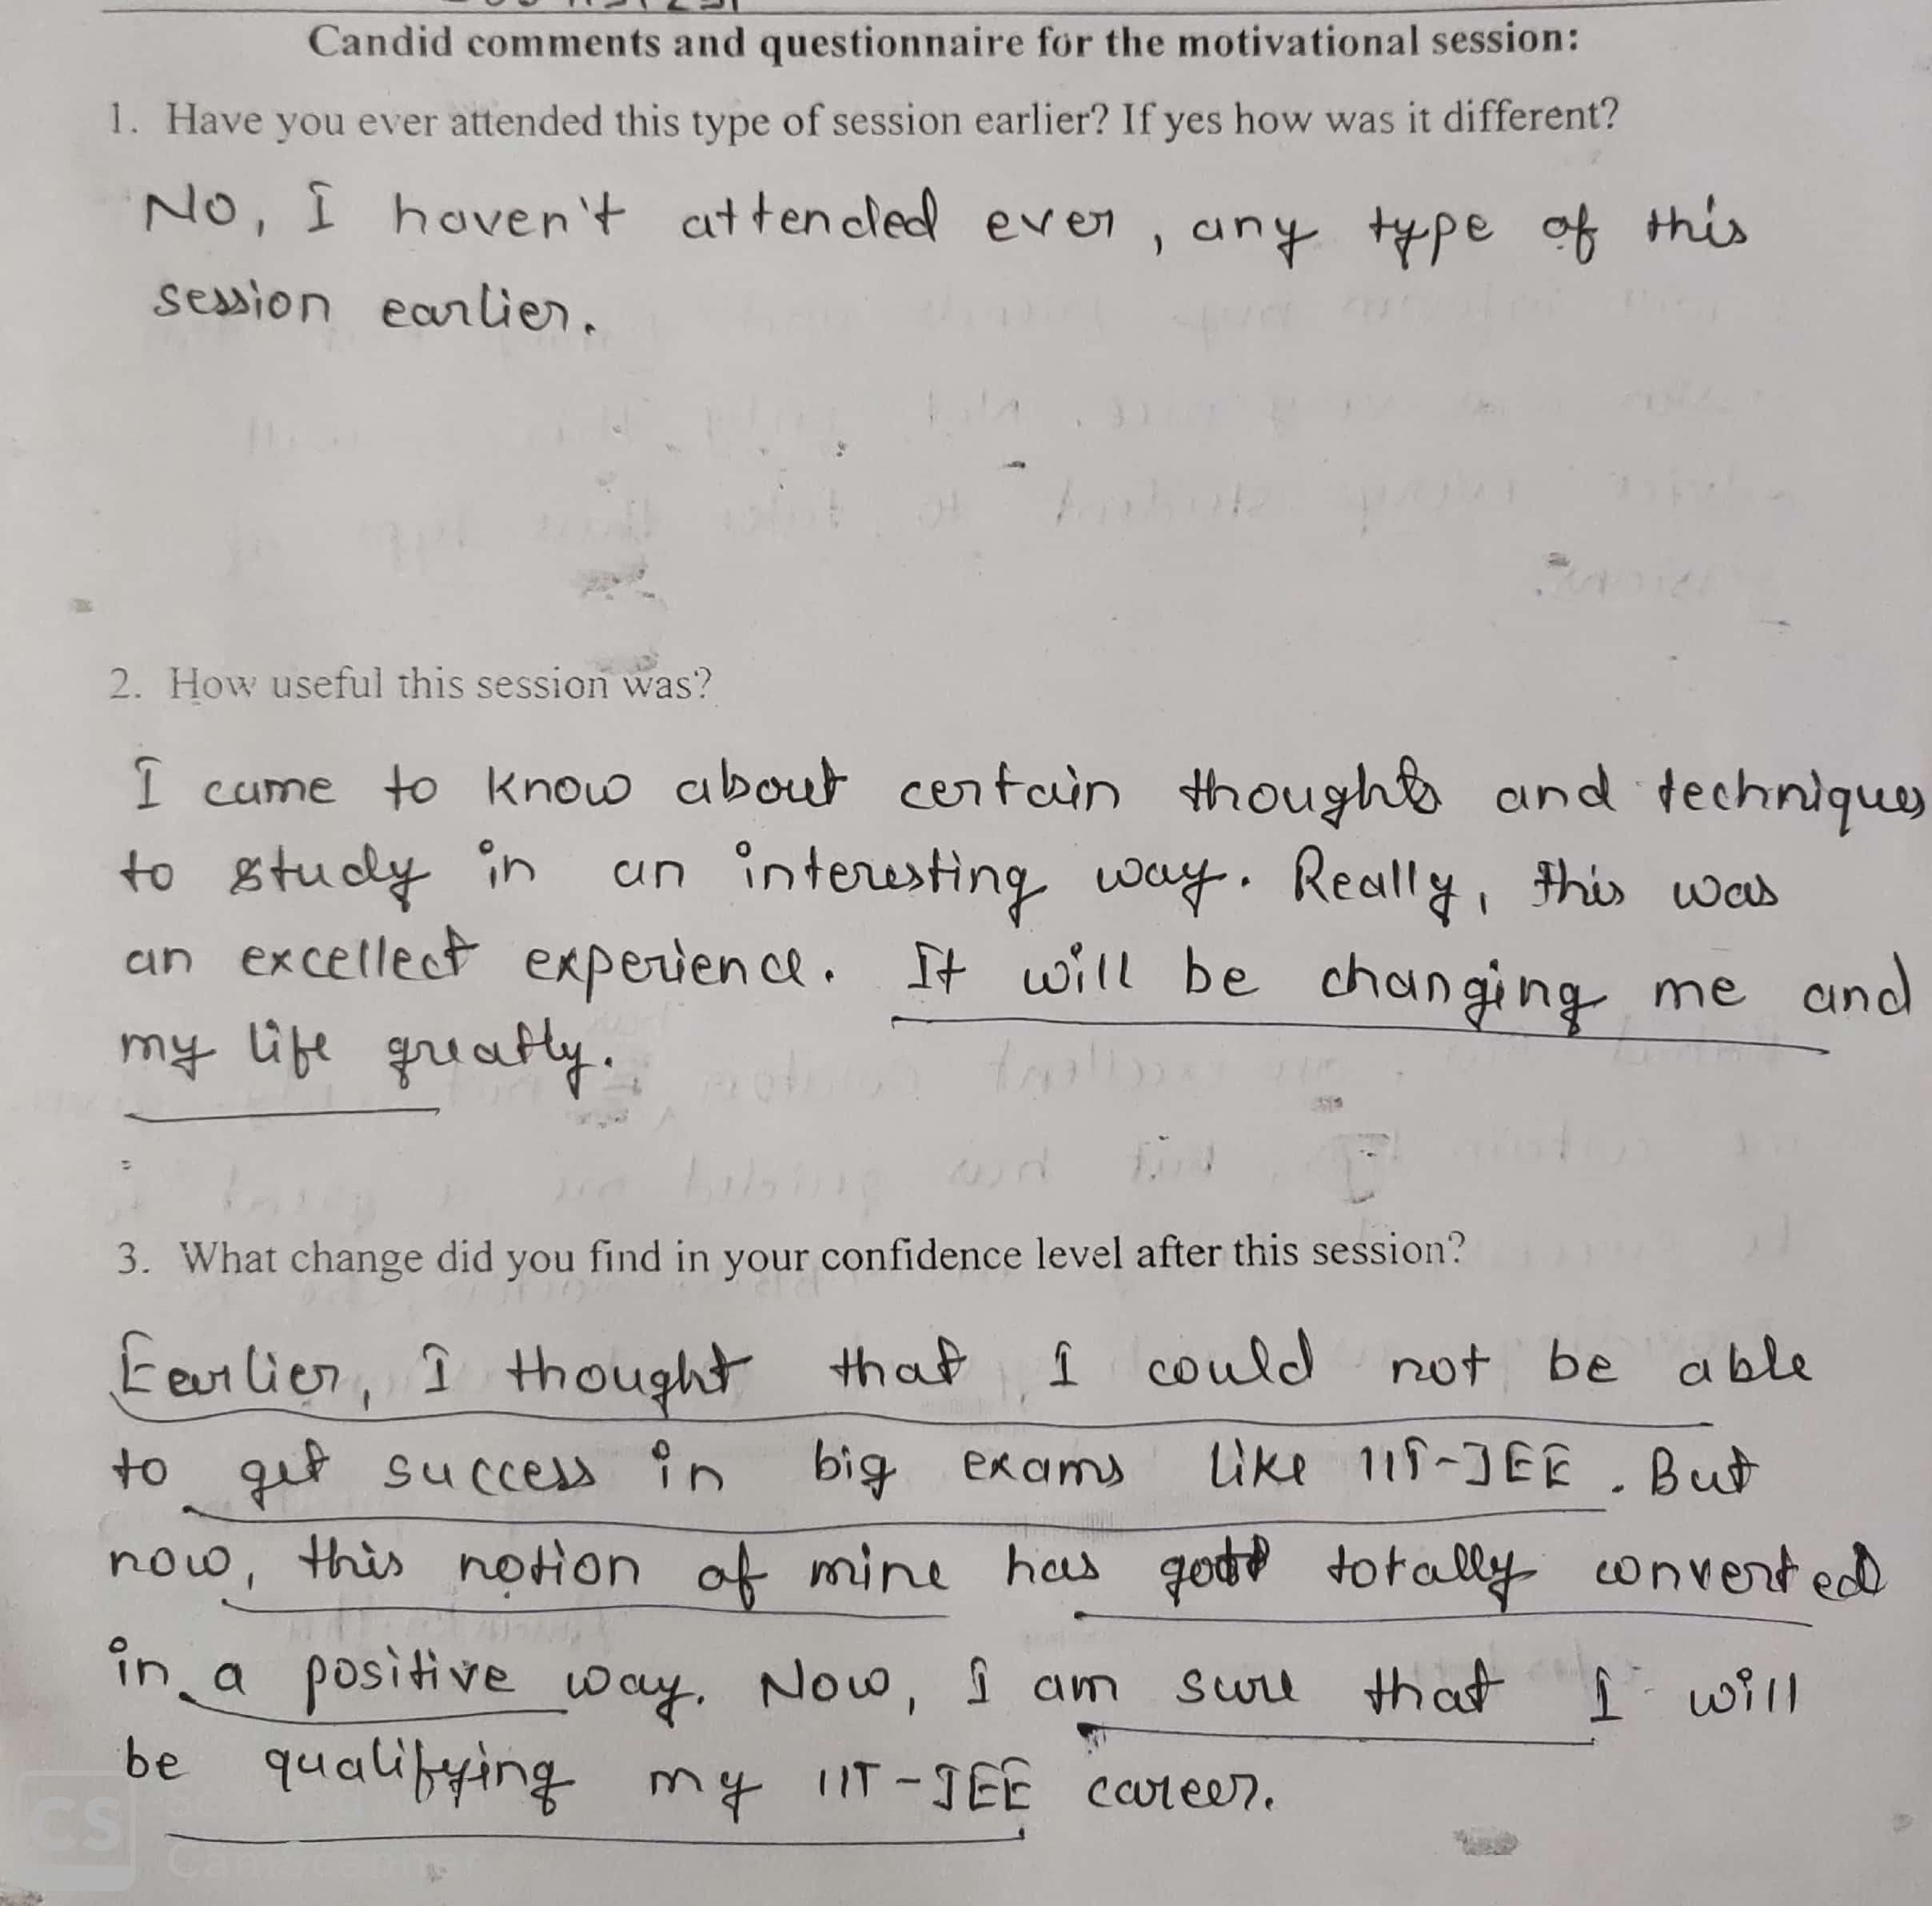 Candid comments and questionnaire for the motivational session:
1. Have you ever attended this type of session earlier? If yes how was it different?
No, I haven't attended ever, any type of this
session earlier.
2. How useful this session was?
I came to know about certain thoughts and techniques
to study in an interesting way. Really, this was
an excellect experience. It will be changing me and
my life greatly.
3. What change did you find in your confidence level after this session?
Earlier, I thought that I could not be able
to get success in big exams like IIT-JEE. But
now, this notion of mine has got totally converted
in a positive way. Now, I am sure that I will
be qualifying my IIT-JEE career.
CS
CamScanner